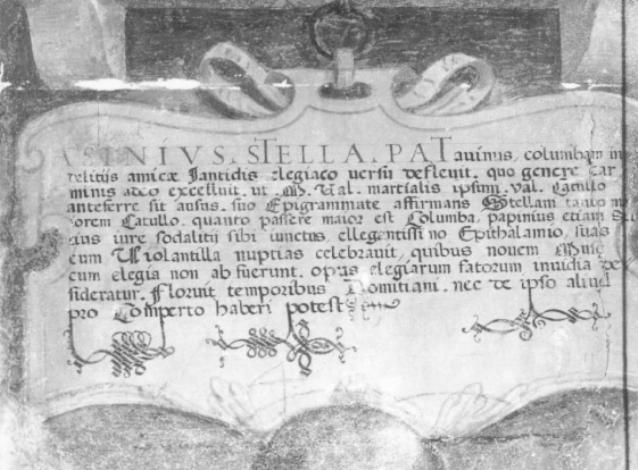 ASINIVS. STELLA. PATavinus, columbam in
delitijs amicæ Iantidis elegiaco versu deflevit. quo genere car
minis adeo excelluit. ut. M. Val. martialis ipsum. Val. Catullo
anteferre sit ausus. suo Epigrammate affirmans Stellam tanto m
orem Catullo. quanto passere maior est Columba. papinius etiam St
aius iure sodalitij sibi iunctus, ellegentissimo Epithalamio, suas
cum Violantilla nuptias celebravit, quibus novem Muse
cum elegia non abfuerunt. opus elegiarum fatorum invidia de
sideratur. Floruit temporibus Domitiani. nec de ipso aliud
pro Comperto haberi potest